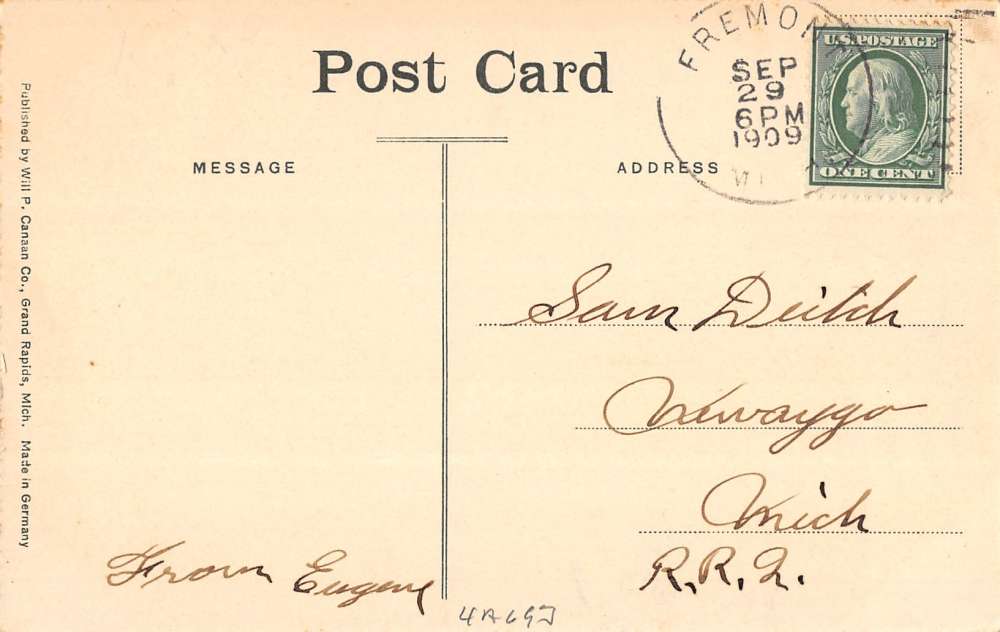 Post Card
MESSAGE
ADDRESS
FREMONT
SEP
29
6PM
1909
U.S. POSTAGE
ONE CENT
Sam Deitch
Newaygo
Mich
R.R.2.
From Eugene
Published by Will P. Canaan Co., Grand Rapids, Mich. Made in Germany